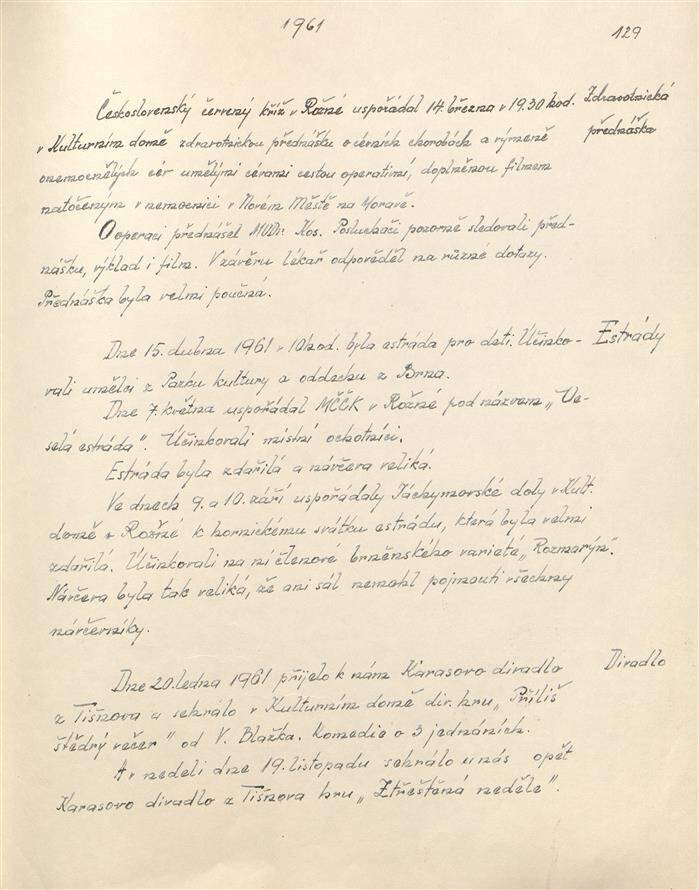 1961
129
Československý červený kříž v Rožné uspořádal 14. března v 19.30 hod. Zdravotnická
v Kulturním domě zdravotnickou přednášku o cévních chorobách a výměně přednáška
onemocnělých cév umělými cévami cestou operativní, doplněnou filmem
natočeným v nemocnici v Novém Městě na Moravě.
O operaci přednášel MUDr. Kos. Posluchači pozorně sledovali před-
nášku, výklad i film. V závěru lékař odpověděl na různé dotazy.
Přednáška byla velmi poučná.
Dne 15. dubna 1961 v 10 hod. byla estráda pro děti. Účinko- Estrády
vali umělci z Parku kultury a oddechu z Brna.
Dne 7. května uspořádal MČČK v Rožné pod názvem „Ve-
selá estráda". Účinkovali místní ochotníci.
Estráda byla zdařilá a návčeva veliká.
Ve dnech 9. a 10. září uspořádaly Jáchymovské doly v Kult.
domě v Rožné k hornickému svátku estrádu, která byla velmi
zdařilá. Účinkovali na ní členové brněnského varieté „Rozmarýn".
Návčeva byla tak veliká, že ani sál nemohl pojmouti všechny
návčevníky.
Dne 20. ledna 1961 přijelo k nám Karasovo divadlo Divadlo
z Tišnova a sehrálo v Kulturním domě div. hru „Příliš
štědrý večer" od V. Blažka. Komedie o 3 jednáních.
A v neděli dne 19. listopadu sehrálo u nás opět
Karasovo divadlo z Tišnova hru „Ztřeštěná neděle".